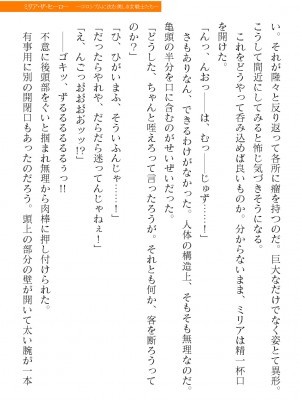 ミリア・ザ・ヒーロー
い。それが隆々と反り返って各所に瘤を持つのだ。巨大なだけでなく姿とて異形。
こうして間近にしてみると怖じ気づきそうになる。
これをどうやって呑み込めば良いものか。分からないまま、ミリアは精一杯口
を開けた。
「んっ、んおっ――は、むっ――じゅず……！」
さもありなん、できるわけがなかった。人体の構造上、そもそも無理なのだ。
亀頭の半分を口に含むのがせいぜいだった。
「どうした、ちゃんと咥えろって言ったろうが、それとも何か、客を断ろうって
のか？」
「ひ、ひがいまふ、そういふんじゃ……！」
「だったらやれや、だらだら迷ってんじゃねぇ！」
「え、んごっおおおおッッ!?」
――ゴキッ、ずるるるるるぅっ!!
不意に後頭部をぐいと掴まれ無理から肉棒に押し付けられた。
有事用に別の開閉口もあったのだろう。頭上の部分の壁が開いて太い腕が一本